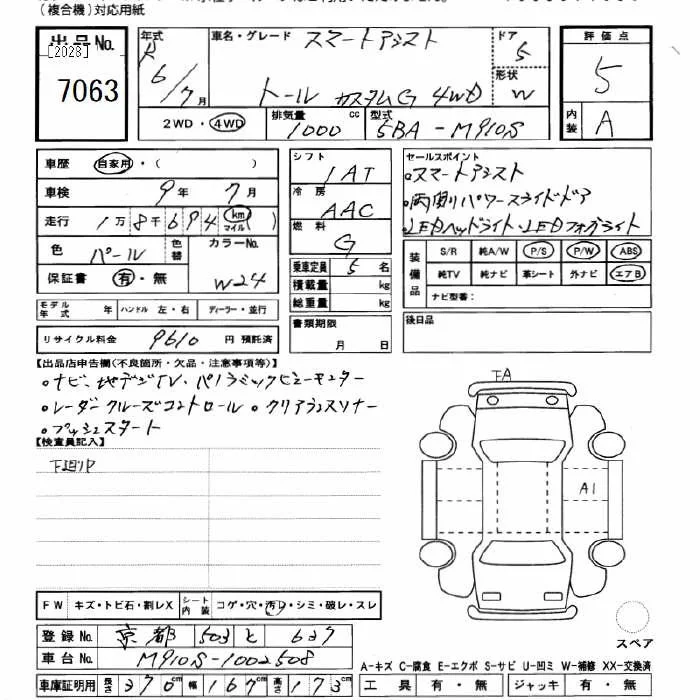 (複合機)対応用紙
出品No. [2023] 7063
年式 R 6/7月
車名・グレード スマートアシスト
トール カスタムG 4WD
ドア 5
形状 W
評価点 5
内装 A
2WD・4WD 排気量 1000 cc 型式 5BA-M910S
車歴 自家用・( )
車検 9年 7月
走行 1万8千694 (km マイル)( )
色 パール 色替 カラーNo. W24
保証書 有・無
モデル年式 年 ハンドル 左・右 ディーラー・並行
リサイクル料金 9610 円 預託済
シフト IAT
冷房 AAC
燃料 G
乗車定員 5名
積載量 kg
総重量 kg
書類期限 月 日
セールスポイント
•スマートアシスト
•両側パワースライドドア
•LEDヘッドライト・LEDフォグライト
装備品 S/R 純A/W P/S P/W ABS
純TV 純ナビ 革シート 外ナビ エアB
ナビ型番:
後日品
【出品店申告欄(不良箇所・欠品・注意事項等)】
•ナビ、地デジTV、パノラミックビューモニター
•レーダークルーズコントロール •クリアランスソナー
•プッシュスタート
【検査員記入】
下廻りP
FA
A1
FW キズ・トビ石・割レX シート内装 コゲ・穴・汚レ・シミ・破レ・スレ
登録No. 京都 503 と 627
車台No. M910S-1002508
車庫証明用 長さ 370cm 幅 167cm 高さ 173cm
スペア
A-キズ C-腐食 E-エクボ S-サビ U-凹ミ W-補修 XX-交換済
工具 有・無 ジャッキ 有・無